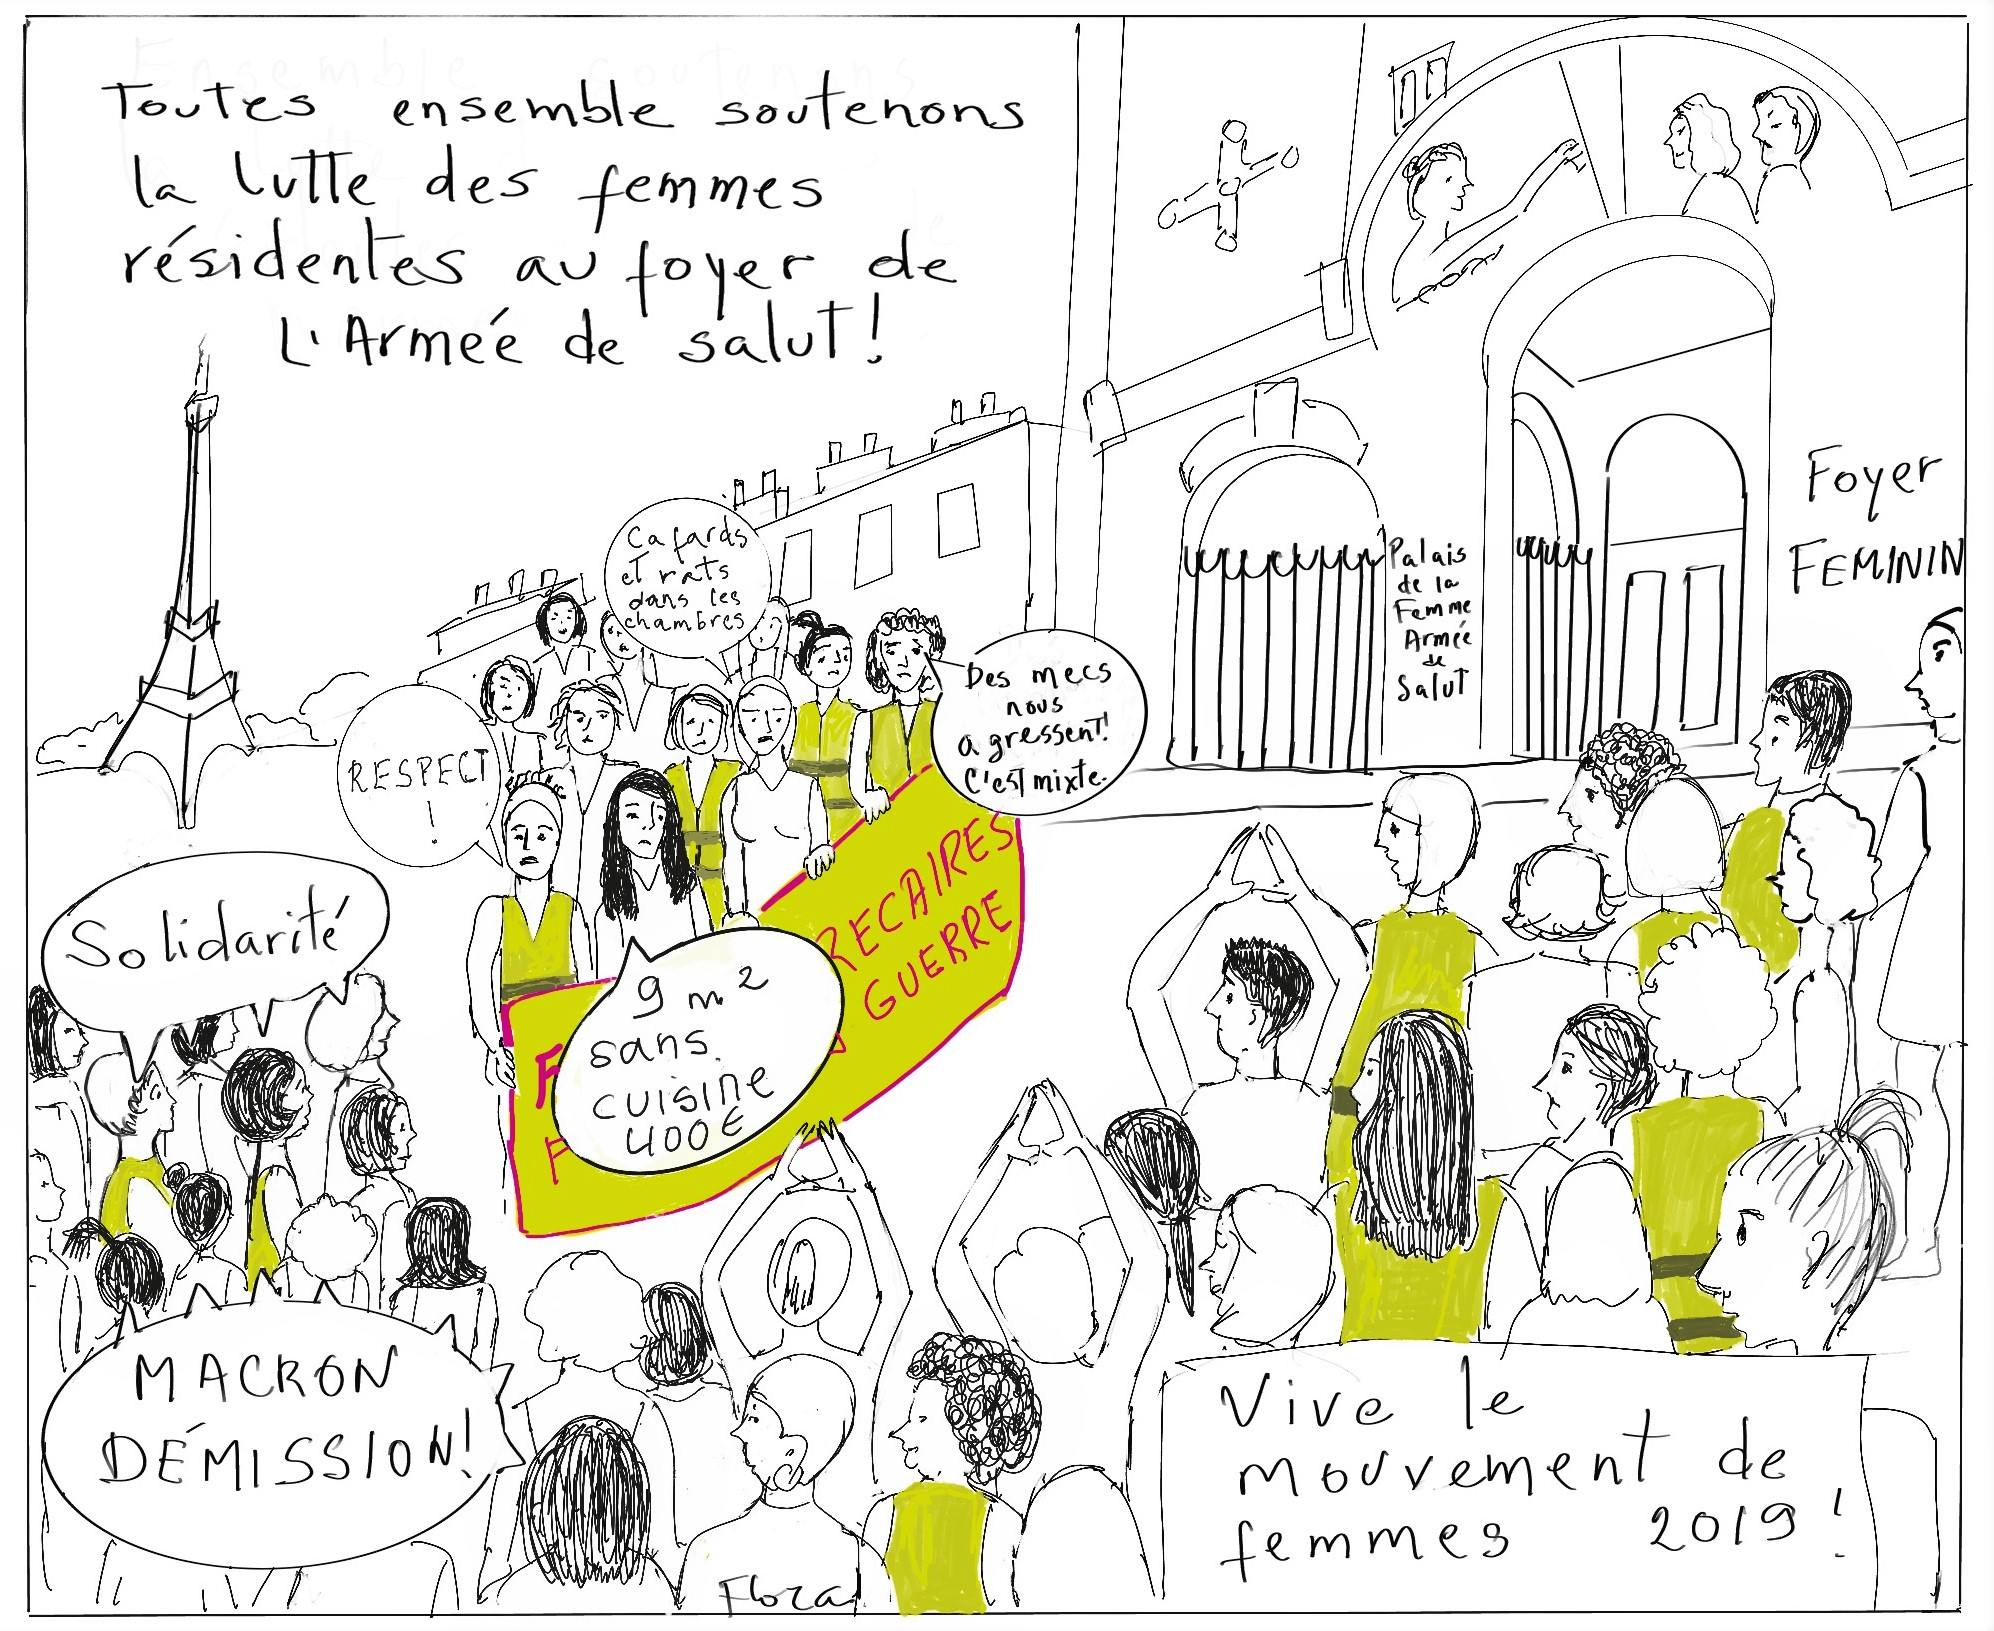 Toutes ensemble soutenons
la lutte des femmes
résidentes au foyer de
L'Armeé de salut!
Foyer
FEMININ
Palais
de la
Femme
Armée
de
Salut
Cafards
et rats
dans les
chambres
Des mecs
nous
agressent!
C'est mixte.
RESPECT
!
Solidarité
9 m²
sans
cuisine
400€
RECAIRES
GUERRE
MACRON
DÉMISSION!
Vive le
mouvement de
femmes 2019!
Flora